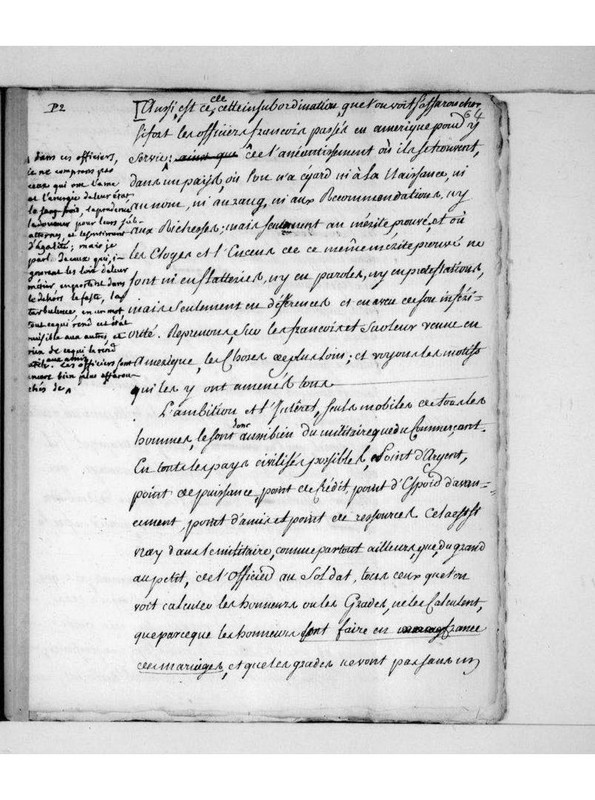 P2
64
[Aussi, est ce cette insubordination, que l'on voit s'effaroucher
si fort les officiers francois passés en amerique pour y
servir; ainsi que de l'anéantissement où ils se trouvent,
dans un pays, où l'on n'a égard ni à la Naissance, ni
au nom, ni au rang, ni aux Recommendations, ny
aux Richesses; mais seulement au mérite prouvé, et où
les Eloges et l'Encens de ce même mérite prouvé ne
sont ni en flatteries, ny en paroles, ny en protestations,
mais seulement en déférences et en aveu de son inféri-
orité. Reprenons, sur les francois et sur leur venue en
Amerique, les choses de plus loin; et voyons les motifs
qui les y ont amenés tous.
L'ambition et l'Intérêt, seuls mobiles de tous les
hommes, le sont donc aussi bien du militaire que du Commerçant.
En tous les pays civilisés possibles, Point d'Argent,
point de puissance, point de Crédit, point d'Espoir d'avan-
cement, point d'amis et point de ressources. Cela est si
vray dans le militaire, comme partout ailleurs, que, du grand
au petit, de l'Officier au Soldat, tous ceux que l'on
voit calculer les honneurs ou les Grades, ne les Calculent,
que parce que les honneurs font faire en france
des mariages, et que les grades ne vont pas sans un
dans ces officiers,
je ne comprens pas
ceux qui ont l'ame
et l'énergie de leur état,
le sang froid, la prudence
la douceur pour leurs sub-
alternes, et le sentiment
d'égalité; mais je
parle de ceux qui, i-
gnorant les loix de leur
métier, en portent dans
le dehors le faste, la
turbulence, en un mot
tout ce qui rend cet état
nuisible aux autres, et
rien de ce qui le rend
utile. Les officiers sont
encore bien plus effarou-
chés de